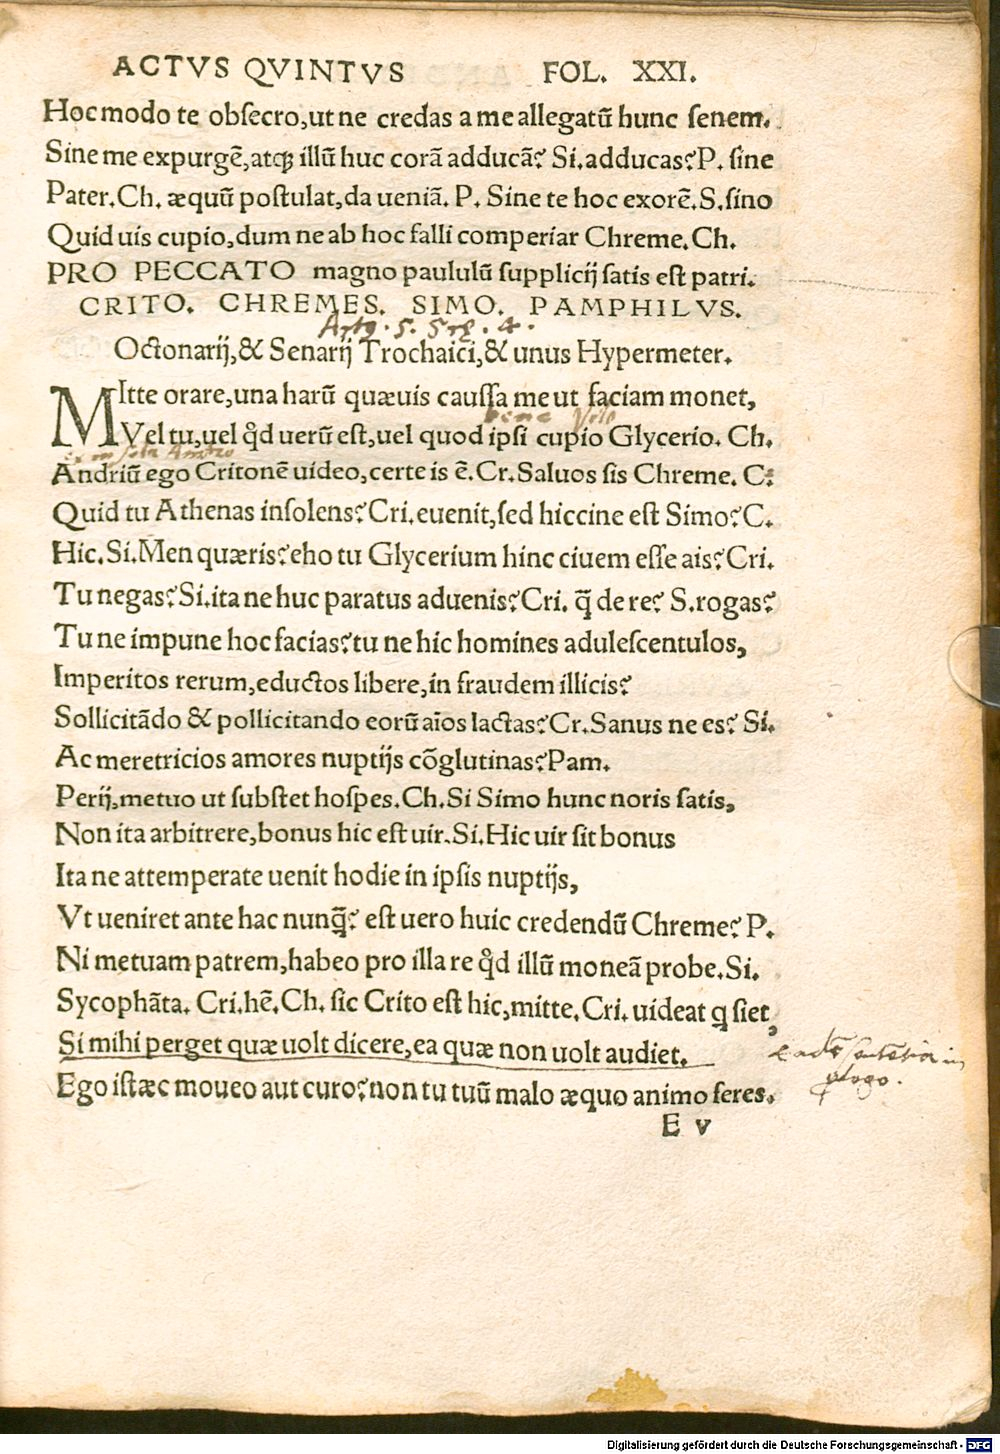 ACTVS QVINTVS FOL. XXI.
Hoc modo te obſecro, ut ne credas a me allegatū hunc ſenem.
Sine me expurgē, atq; illū huc corā adducā? Si. adducas? P. ſine
Pater. Ch. æquū poſtulat, da ueniā. P. Sine te hoc exorē. S. ſino
Quid uis cupio, dum ne ab hoc falli comperiar Chreme. Ch.
PRO PECCATO magno paululū ſupplicij ſatis eſt patri.
CRITO. CHREMES. SIMO. PAMPHILVS.
Octonarij, & Senarij Trochaici, & unus Hypermeter.
MItte orare, una harū quæuis cauſſa me ut faciam monet,
bene Volo
Vel tu, uel qd̄ uerū eſt, uel quod ipſi cupio Glycerio. Ch.
Andriū ego Critonē uideo, certe is ē. Cr. Saluos ſis Chreme. C:
Quid tu Athenas inſolens? Cri. euenit, ſed hiccine eſt Simo? C.
Hic. Si. Men quæris? eho tu Glycerium hinc ciuem eſſe ais? Cri.
Tu negas? Si. ita ne huc paratus aduenis? Cri. q̄ de re? S. rogas?
Tu ne impune hoc facias? tu ne hic homines aduleſcentulos,
Imperitos rerum, eductos libere, in fraudem illicis?
Sollicitādo & pollicitando eorū aīos lactas? Cr. Sanus ne es? Si.
Ac meretricios amores nuptijs cōglutinas? Pam.
Perij, metuo ut ſubſtet hoſpes. Ch. Si Simo hunc noris ſatis,
Non ita arbitrere, bonus hic eſt uir. Si. Hic uir ſit bonus
Ita ne attemperate uenit hodie in ipſis nuptijs,
Vt ueniret ante hac nunq̄? eſt uero huic credendū Chreme? P.
Ni metuam patrem, habeo pro illa re qd̄ illū moneā probe. Si.
Sycophāta. Cri. hē. Ch. ſic Crito eſt hic, mitte. Cri. uideat q ſiet,
Si mihi perget quæ uolt dicere, ea quæ non uolt audiet.
Ego iſtæc moueo aut curo? non tu tuū malo æquo animo feres.
E v
Digitalisierung gefördert durch die Deutsche Forschungsgemeinschaft - DFG